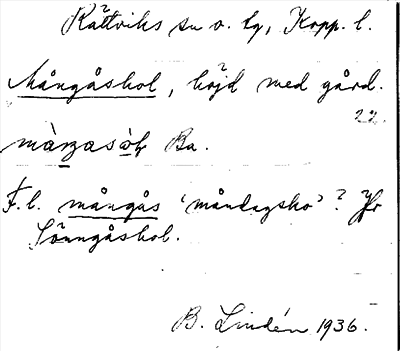 Rättviks sn o. tg, Kopp. l.
Mångåshol, höjd med gård.
22.
Ba.
F. l. mångås 'måndagsko'? Jfr
Sönngåshol.
B. Lindén 1936.